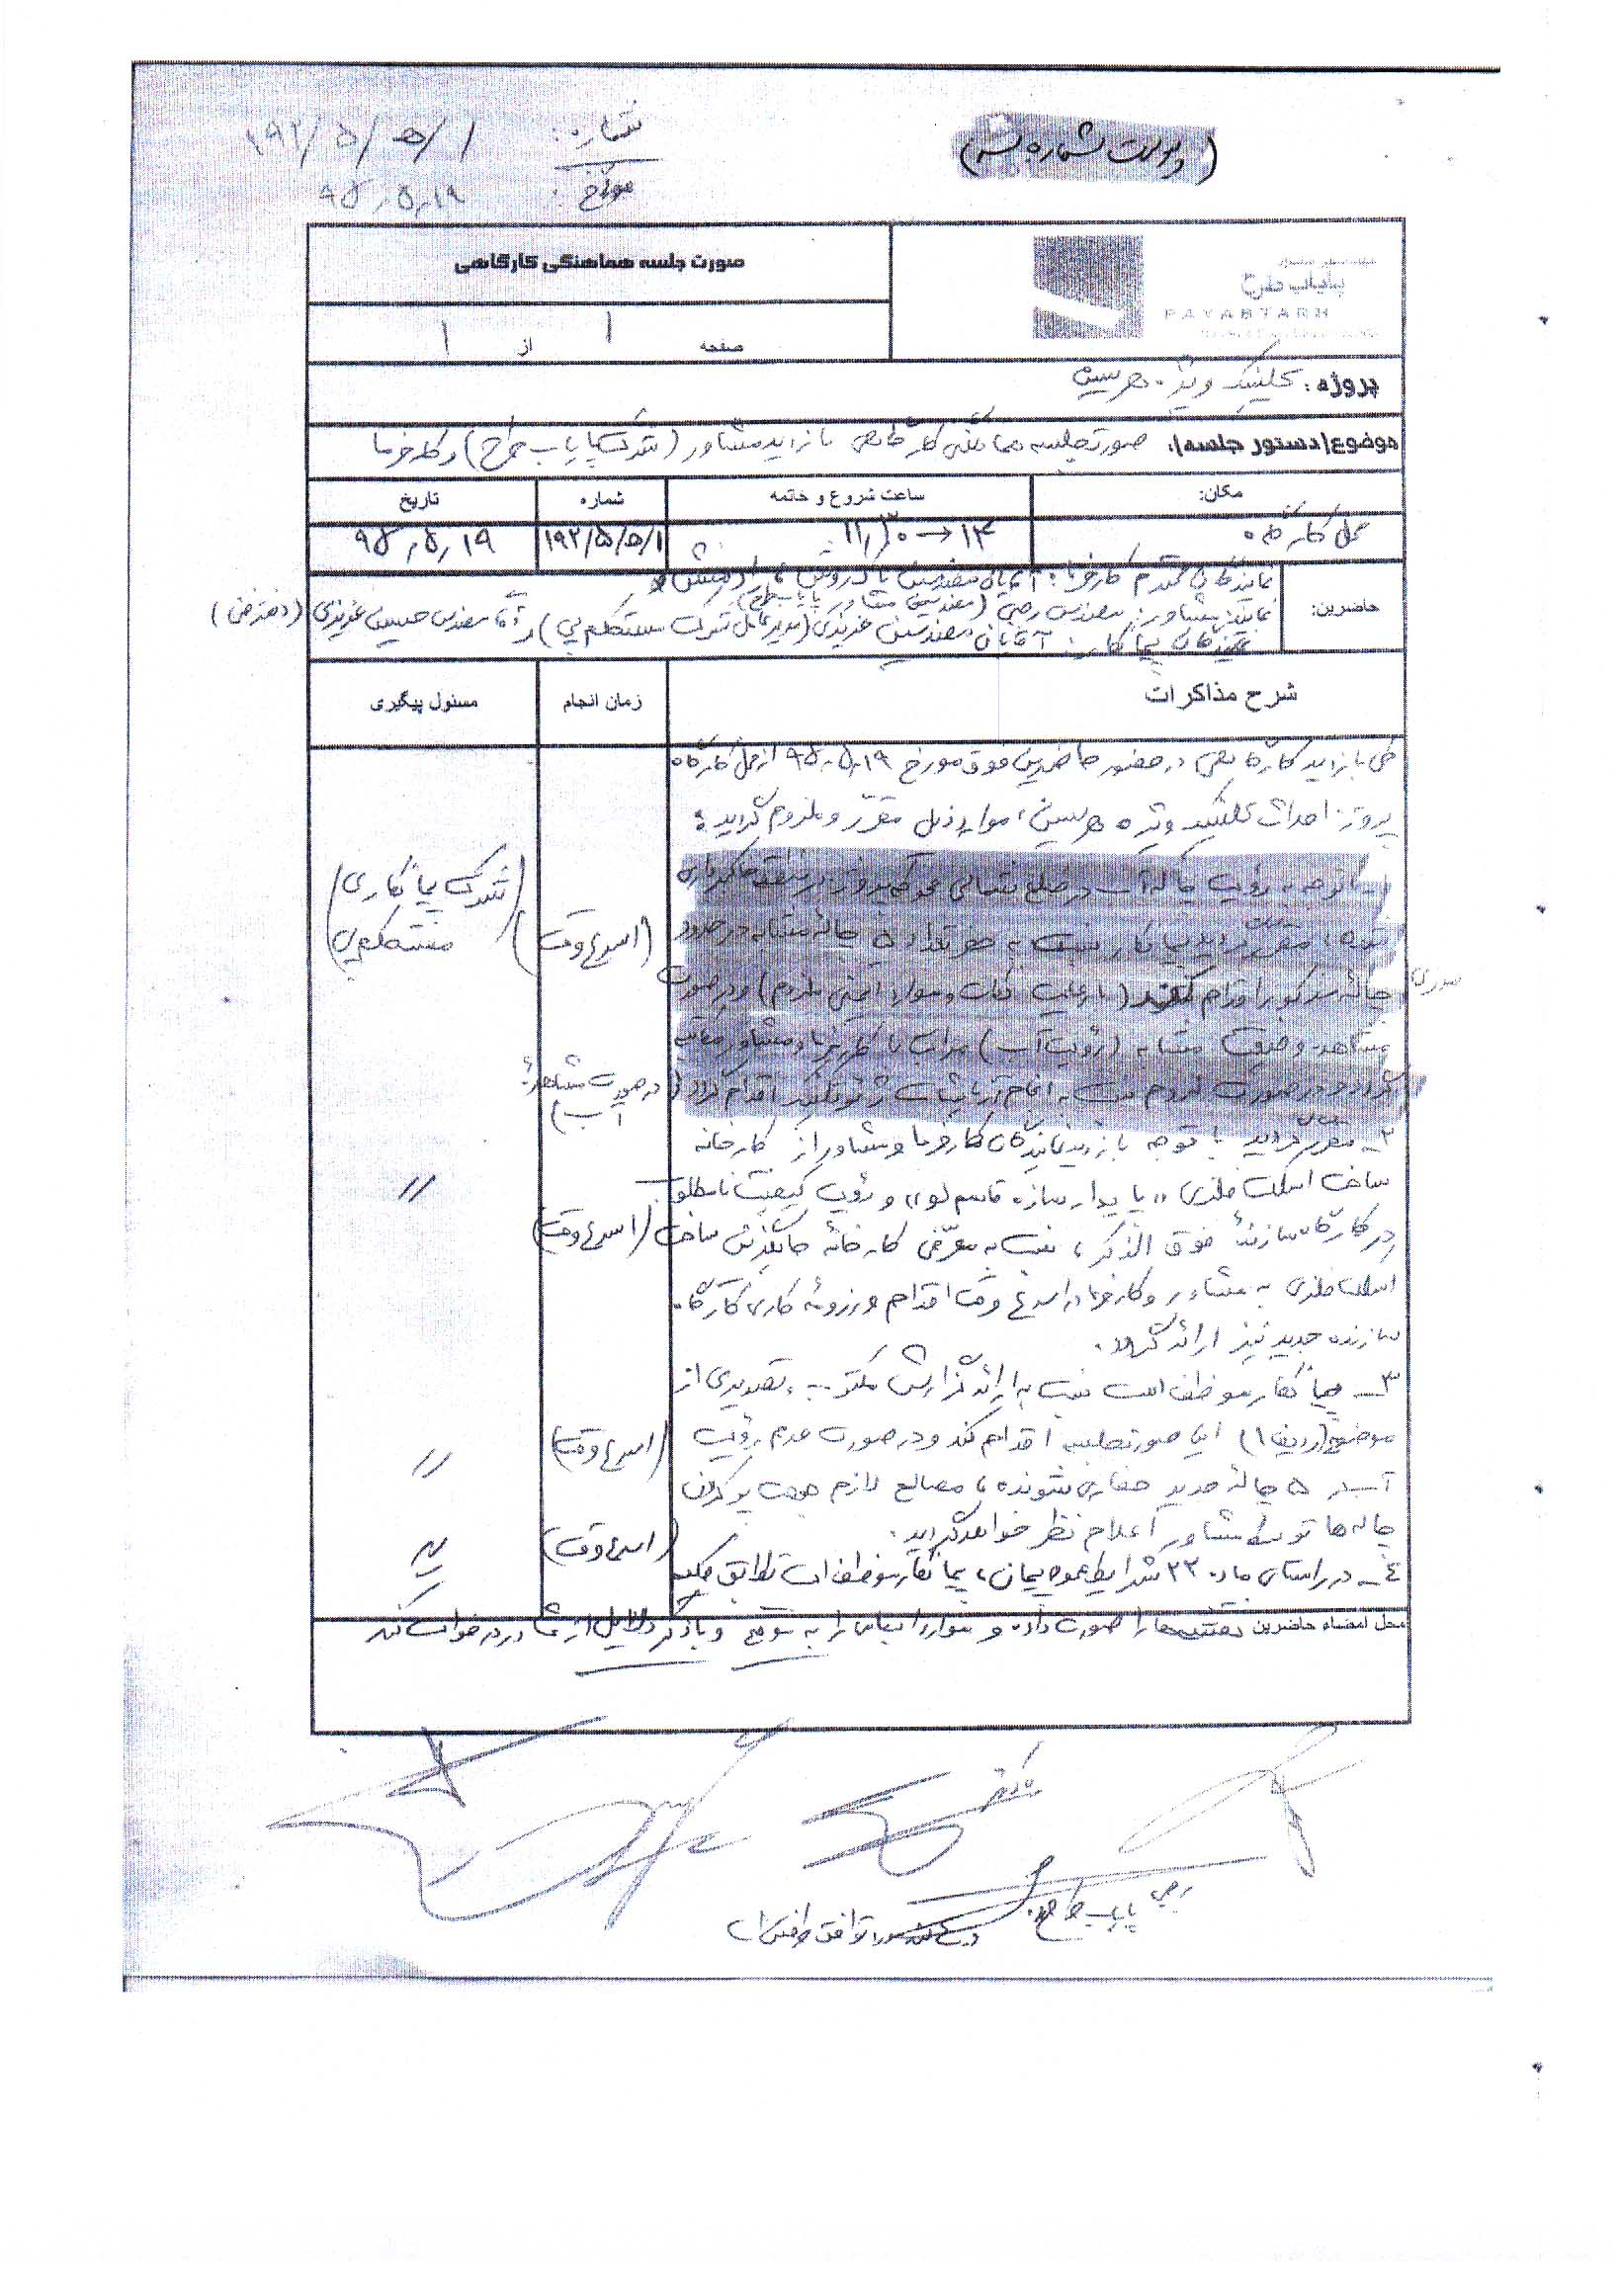 (پیوست شماره سه)
شماره: ۱۹۲/۵/۵/۱
مورخ: ۹۵،۵،۱۹
صورت جلسه هماهنگی کارگاهی
پایاب طرح
PAYABTARH
صفحه ۱ از ۱
پروژه: کلینیک ویژه هرسین
موضوع(دستور جلسه): صورتجلسه هماهنگی کارگاهی بازدید مشاور (شرکت پایاب طرح) و کارفرما
مکان: ساعت شروع و خاتمه شماره تاریخ
محل کارگاه ۱۱،۳۰ → ۱۴ ۱۹۲/۵/۵/۱ ۹۵،۵،۱۹
نمایندگان محترم کارفرما: آقایان مهندسین پاک روش
حاضرین: نماینده مشاور: مهندس رجبی (مهندسین مشاور پایاب طرح)
نمایندگان پیمانکار: آقایان مهندسین عزیزی (مدیرعامل شرکت مستحکم پی) و مهندس حسین عزیزی (دفتر فنی)
شرح مذاکرات زمان انجام مسئول پیگیری
طی بازدید کارگاهی در حضور حاضرین فوق مورخ ۹۵،۵،۱۹ از محل کارگاه
پروژه احداث کلینیک ویژه هرسین، موارد ذیل مقرر و ملزوم گردید:
۱- با توجه به رؤیت چاله آب در ضلع شمالی محوطه پروژه در منطقه خاکبرداری
شده، مقرر گردید پیمانکار نسبت به حفر تعداد ۵ چاله مشابه در حدود (اسرع وقت) (شرکت پیمانکاری مستحکم پی)
چاله مذکور اقدام کند (با رعایت نکات و موارد ایمنی ملزوم) و در صورت
مشاهده وضعیت مشابه (رؤیت آب) مراتب با کارفرما و مشاور مکاتبه
گردد و در صورت لزوم نسبت به انجام آزمایشات ژئوتکنیک اقدام گردد (در صورت مشاهده آب)
۲- مقرر گردید با توجه بازدید نمایندگان کارفرما و مشاور از کارخانه
ساخت اسکلت فلزی "پایدار سازه قاسم لو" و رؤیت کیفیت نامطلوب //
در کارگاه سازنده فوق الذکر، نسبت به معرفی کارخانه جایگزین ساخت (اسرع وقت)
اسکلت فلزی به مشاور و کارفرما در اسرع وقت اقدام و رزومه کاری کارگاه
سازنده جدید نیز ارائه گردد.
۳- پیمانکار موظف است نسبت به ارائه گزارش مکتوب و تصویری از
موضوع (ردیف ۱) این صورتجلسه اقدام کند و در صورت عدم رؤیت (اسرع وقت) //
آب در ۵ چاله جدید حفاری شونده، مصالح لازم جهت پر کردن
چاله ها توسط مشاور اعلام نظر خواهد گردید.
۴- در راستای ماده ۲۲ شرایط عمومی پیمان، پیمانکار موظف است تطابق کلیه (اسرع وقت) //
محل امضاء حاضرین نقشه ها را صورت داده و موارد ابهامی را به موقع و با ذکر دلایل از مشاور درخواست کند
رجبی
پایاب طرح